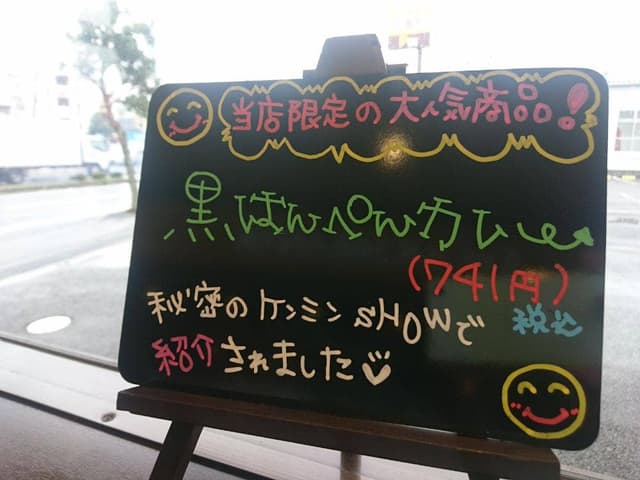 当店限定の大人気商品!
黒はんぺんカレー
(741円)
税込
秘密のケンミンSHOWで
紹介されました♡